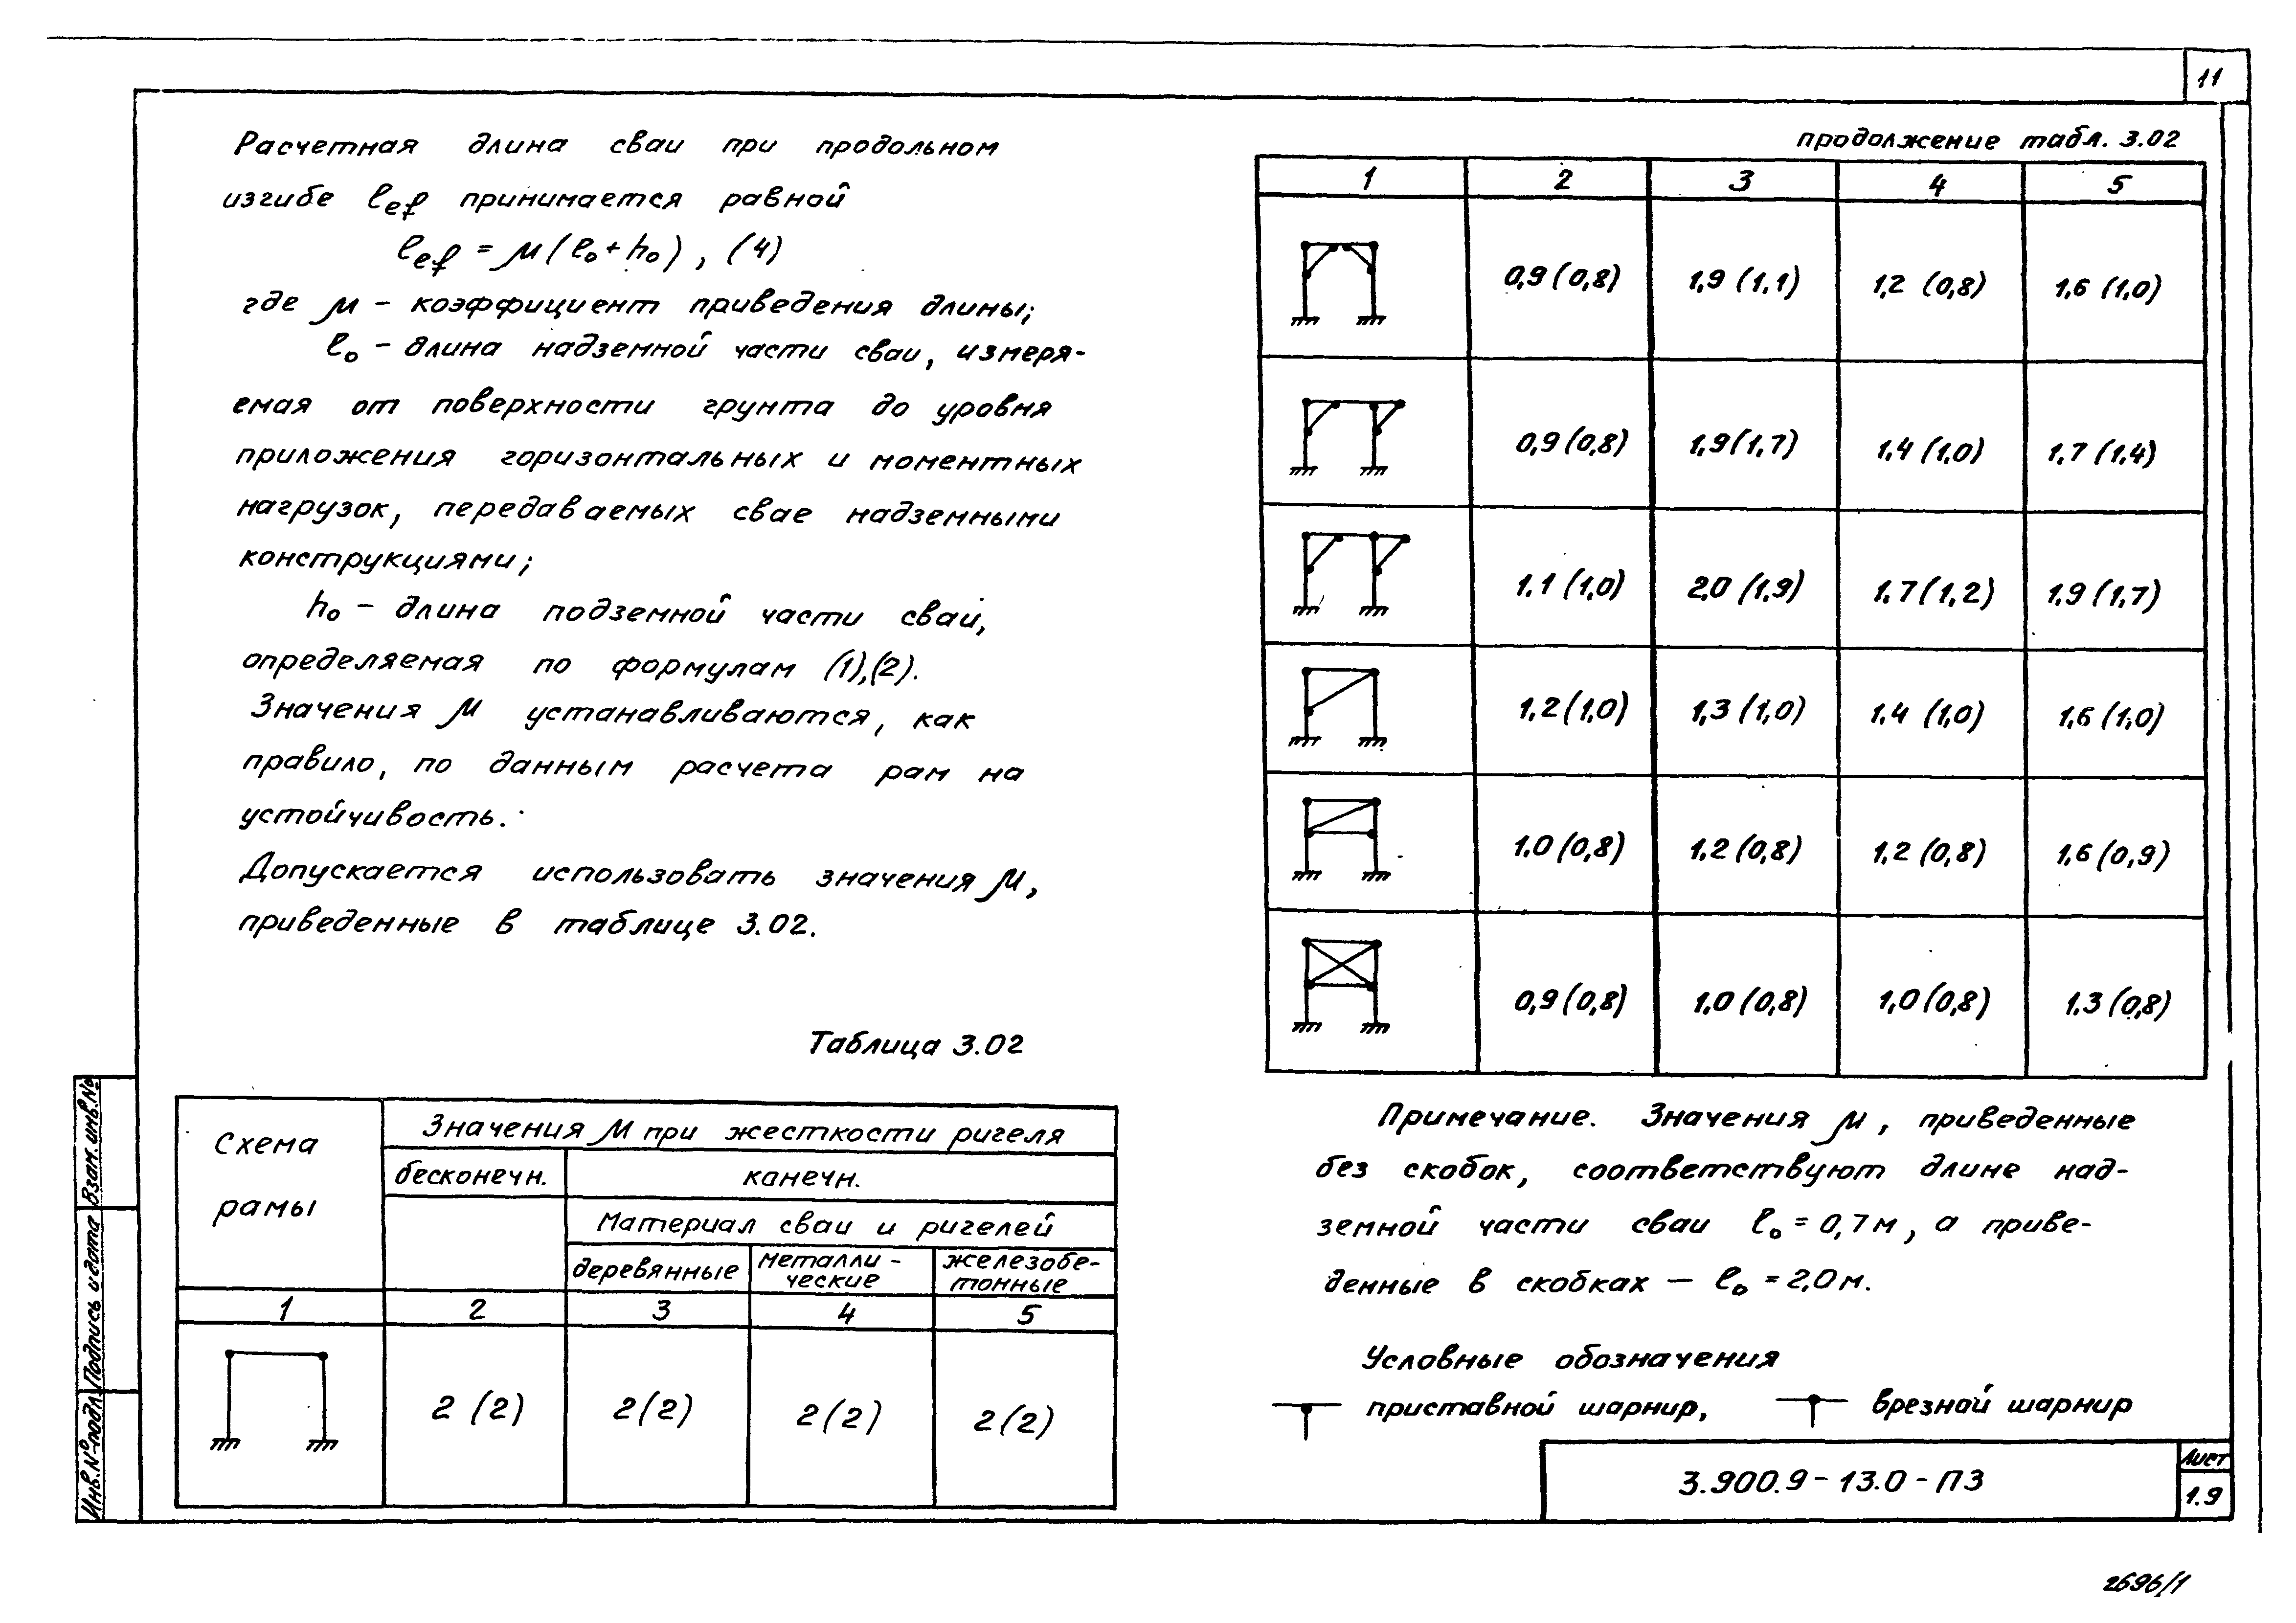 11
Расчетная длина сваи при продольном
изгибе ℓef принимается равной
ℓef = μ(ℓо + hо), (4)
где μ – коэффициент приведения длины;
ℓо – длина надземной части сваи, измеря-
емая от поверхности грунта до уровня
приложения горизонтальных и моментных
нагрузок, передаваемых свае надземными
конструкциями;
hо – длина подземной части сваи,
определяемая по формулам (1),(2).
Значения μ устанавливаются, как
правило, по данным расчета рам на
устойчивость.
Допускается использовать значения μ,
приведенные в таблице 3.02.
Таблица 3.02
Схема рамы
Значения μ при жесткости ригеля
бесконечн. канечн.
Материал сваи и ригелей
деревянные металли-ческие железобе-тонные
1 2 3 4 5
2 (2) 2(2) 2(2) 2(2)
продолжение табл. 3.02
1 2 3 4 5
0,9 (0,8) 1,9 (1,1) 1,2 (0,8) 1,6 (1,0)
0,9 (0,8) 1,9(1,7) 1,4 (1,0) 1,7 (1,4)
1,1 (1,0) 2,0 (1,9) 1,7(1,2) 1,9 (1,7)
1,2(1,0) 1,3 (1,0) 1,4 (1,0) 1,6 (1,0)
1,0 (0,8) 1,2 (0,8) 1,2 (0,8) 1,6(0,9)
0,9 (0,8) 1,0 (0,8) 1,0 (0,8) 1,3 (0,8)
Примечание. Значения μ, приведенные
без скобок, соответствуют длине над-
земной части сваи ℓо = 0,7м, а приве-
денные в скобках — ℓо = 2,0м.
Условные обозначения
приставной шарнир, врезной шарнир
3.900.9 – 13.0 – ПЗ
Лист
1.9
Инв.№ подл. Подпись и дата Взам. инв.№
2696/1